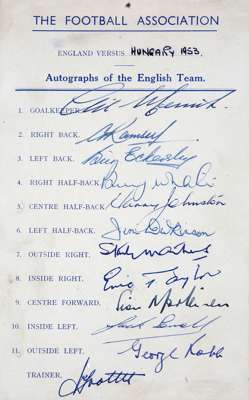 THE FOOTBALL ASSOCIATION
ENGLAND VERSUS HUNGARY 1953.
Autographs of the English Team.
1. GOALKEEPER Gil Merrick
2. RIGHT BACK. A Ramsey
3. LEFT BACK. Bill Eckersley
4. RIGHT HALF-BACK. Billy Wright
5. CENTRE HALF-BACK. Harry Johnston
6. LEFT HALF-BACK. Jim Dickinson
7. OUTSIDE RIGHT. Stanley Matthews
8. INSIDE RIGHT. Ernie Taylor
9. CENTRE FORWARD. Stan Mortensen
10. INSIDE LEFT. Jack Sewell
11. OUTSIDE LEFT. George Robb
TRAINER.